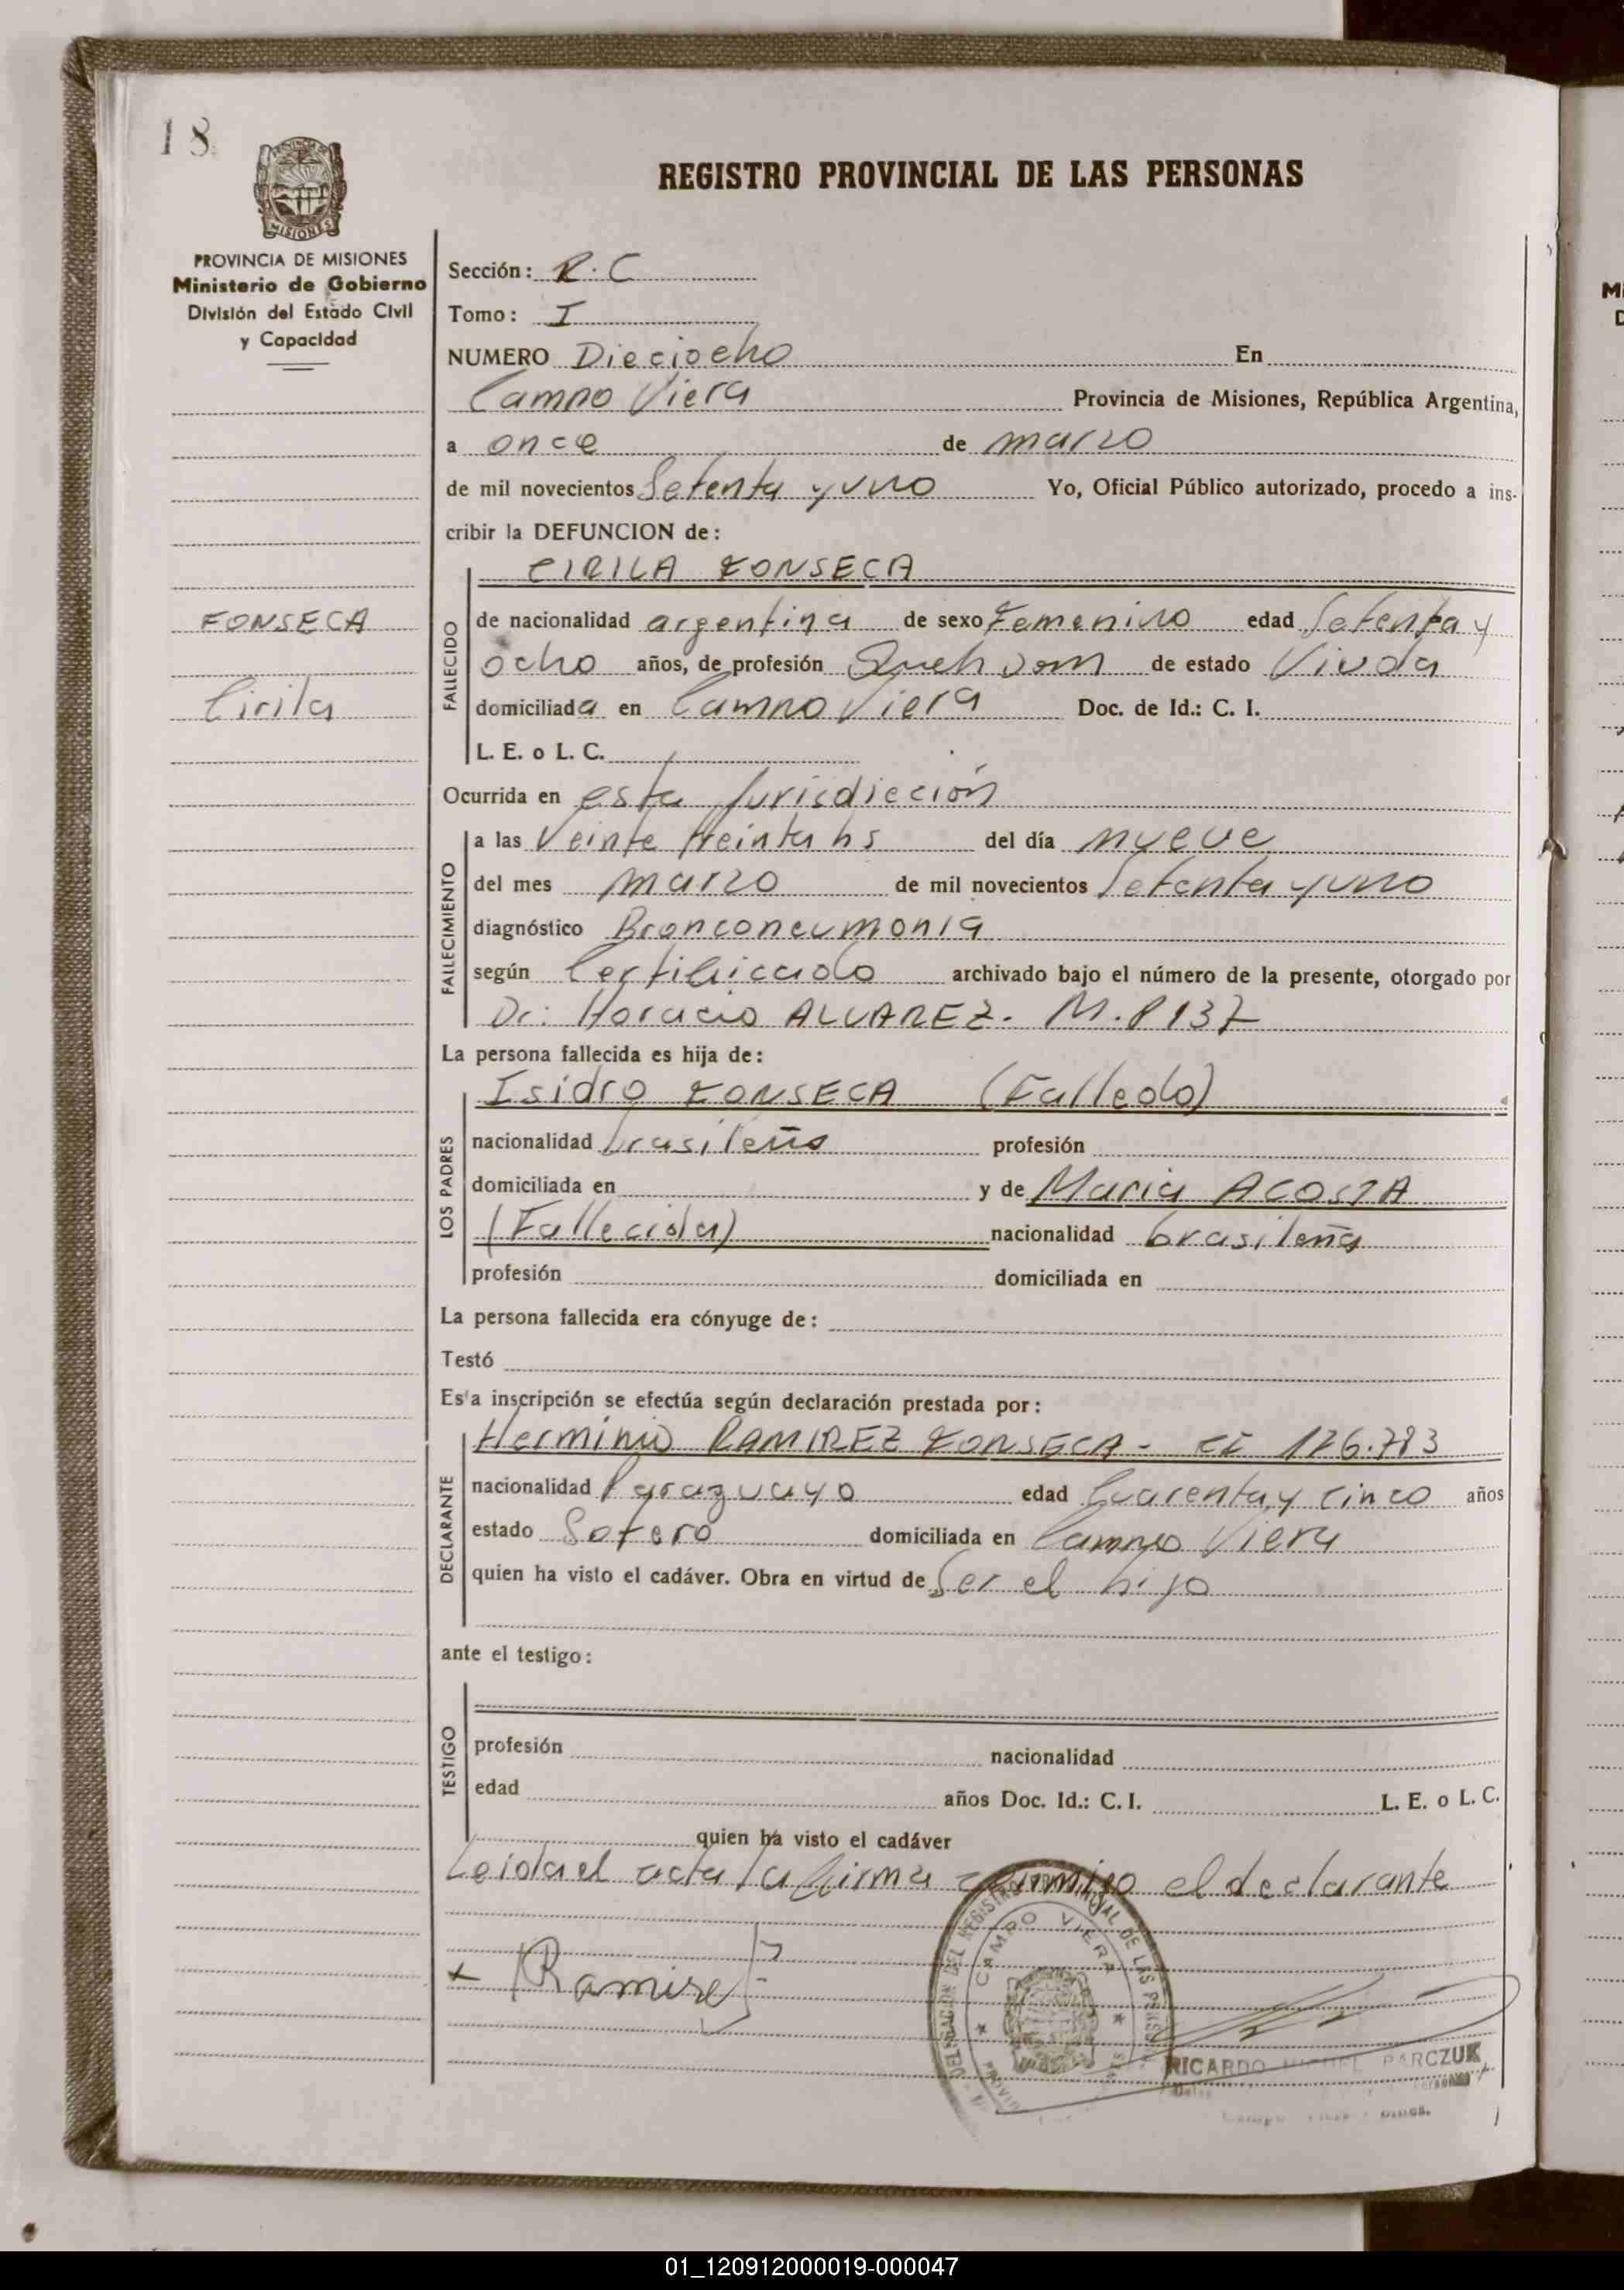 18
REGISTRO PROVINCIAL DE LAS PERSONAS
MISIONES
PROVINCIA DE MISIONES
Ministerio de Gobierno
División del Estado Civil
y Capacidad
Sección: R.C
Tomo: I
NUMERO Dieciocho En
Campo Viera Provincia de Misiones, República Argentina,
a once de marzo
de mil novecientos Setenta y uno Yo, Oficial Público autorizado, procedo a ins-
cribir la DEFUNCION de:
CIRILA FONSECA
FONSECA
Cirila
FALLECIDO
de nacionalidad argentina de sexo Femenino edad Setenta y
ocho años, de profesión Queh Dom de estado Viuda
domiciliada en Campo Viera Doc. de Id.: C. I.
L. E. o L. C.
Ocurrida en esta Jurisdicción
FALLECIMIENTO
a las Veinte treinta hs del día nueve
del mes marzo de mil novecientos Setenta y uno
diagnóstico Bronconeumonia
según Certificado archivado bajo el número de la presente, otorgado por
Dr: Horacio ALVAREZ. M.P 137
La persona fallecida es hija de:
LOS PADRES
Isidro FONSECA (Falledo)
nacionalidad brasileño profesión
domiciliada en y de Maria ACOSTA
(Fallecida) nacionalidad brasileña
profesión domiciliada en
La persona fallecida era cónyuge de:
Testó
Esta inscripción se efectúa según declaración prestada por:
DECLARANTE
Herminio RAMIREZ FONSECA - CI 176.783
nacionalidad Paraguayo edad Cuarenta y cinco años
estado Sotero domiciliada en Campo Viera
quien ha visto el cadáver. Obra en virtud de Ser el hijo
ante el testigo:
TESTIGO
profesión nacionalidad
edad años Doc. Id.: C. I. L. E. o L. C.
quien ha visto el cadáver
Leida el acta la firma conmigo el declarante
Ramirez
CAMPO VIERA
RICARDO MIGUEL PARCZUK
01_120912000019-000047